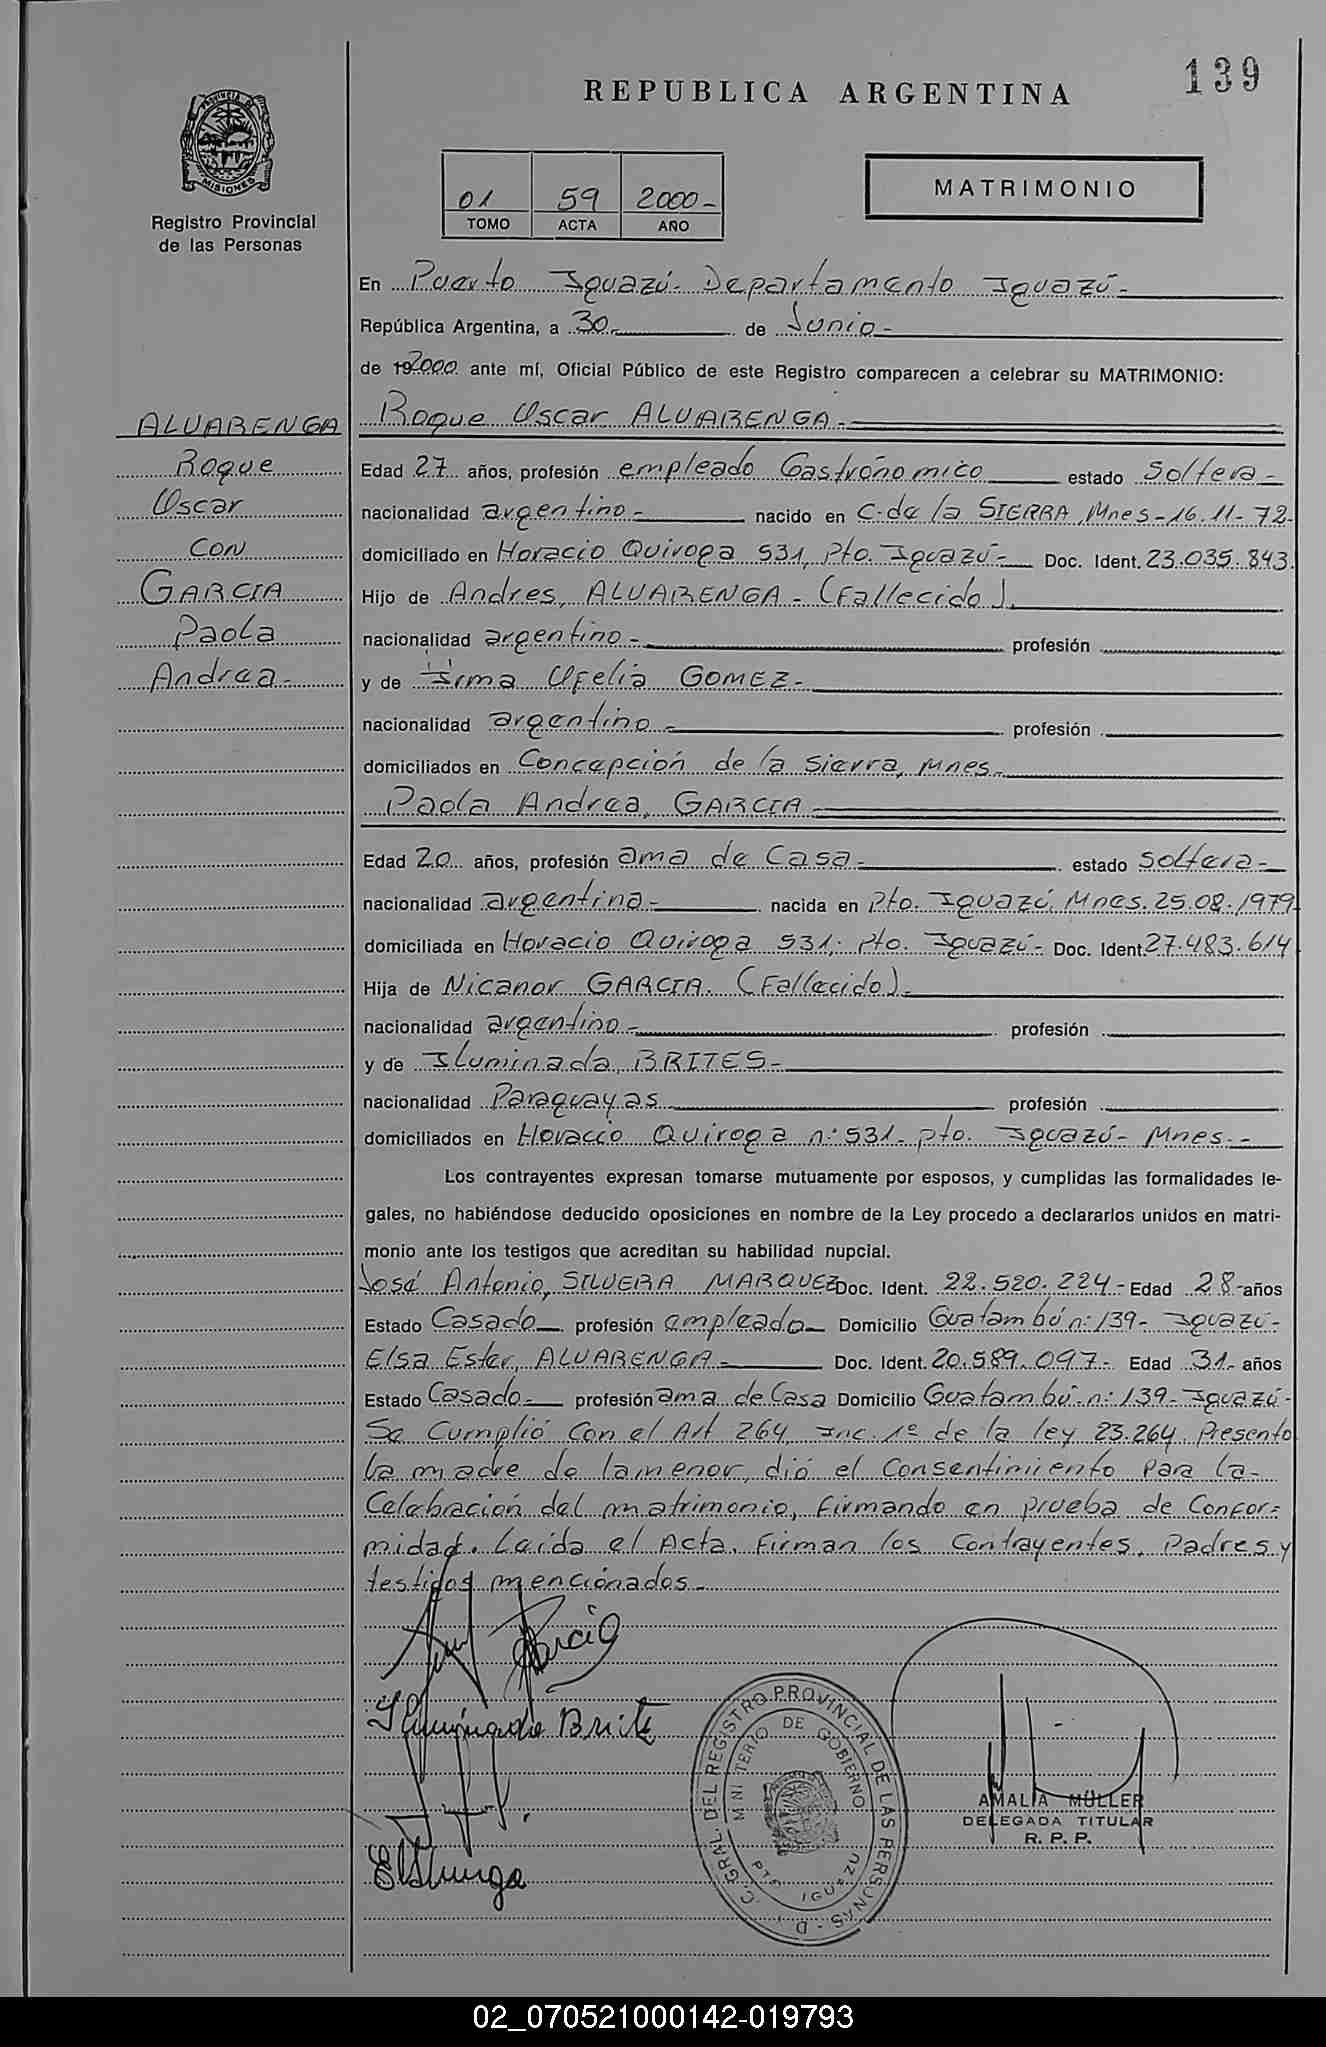 139
REPUBLICA ARGENTINA
PROVINCIA DE
MISIONES
Registro Provincial
de las Personas
01 59 2000-
TOMO ACTA AÑO
MATRIMONIO
En Puerto Iguazú- Departamento Iguazú-
República Argentina, a 30.- de Junio-
de 192000 ante mí, Oficial Público de este Registro comparecen a celebrar su MATRIMONIO:
Roque Oscar ALVARENGA.-
ALVARENGA
Roque
Oscar
CON
GARCIA
Paola
Andrea-
Edad 27 años, profesión empleado Gastronomico estado Soltera-
nacionalidad argentino- nacido en C. de la SIERRA, Mnes-16.11-72-
domiciliado en Horacio Quiroga 531, Pto. Iguazú- Doc. Ident. 23.035.843.
Hijo de Andres, ALVARENGA - (Fallecido).
nacionalidad argentino- profesión
y de Irma Ofelia GOMEZ-
nacionalidad argentino- profesión
domiciliados en Concepción de la Sierra, Mnes-
Paola Andrea, GARCIA
Edad 20 años, profesión ama de Casa- estado Soltera-
nacionalidad argentina- nacida en Pto. Iguazú, Mnes. 25.08.1979
domiciliada en Horacio Quiroga 531; Pto. Iguazú- Doc. Ident. 27.483.614
Hija de Nicanor GARCIA. (Fallecido).
nacionalidad argentino- profesión
y de Iluminada, BRITES-
nacionalidad Paraguayas profesión
domiciliados en Horacio Quiroga n:531- pto. Iguazú- Mnes.-
Los contrayentes expresan tomarse mutuamente por esposos, y cumplidas las formalidades le-
gales, no habiéndose deducido oposiciones en nombre de la Ley procedo a declararlos unidos en matri-
monio ante los testigos que acreditan su habilidad nupcial.
José Antonio, SILVERA MARQUEZ Doc. Ident. 22.520.224- Edad 28-años
Estado Casado profesión empleado Domicilio Guatambú n:139- Iguazú-
Elsa Ester, ALVARENGA- Doc. Ident. 20.589.097- Edad 31- años
Estado Casado- profesión ama de Casa Domicilio Guatambú- n:139- Iguazú-
Se Cumplió con el Art 264, Inc. 1º de la ley 23.264. Presento
la madre de la menor, dió el Consentimiento para la-
Celebración del matrimonio, firmando en prueba de Confor=
midad. Leída el Acta. Firman los Contrayentes, Padres y
testigos mencionados-
Garcia
Iluminada Brite
D. C. GRAL. DEL REGISTRO PROVINCIAL DE LAS PERSONAS
MINISTERIO DE GOBIERNO
PTO IGUAZU
AMALIA MÜLLER
DELEGADA TITULAR
R. P. P.
02_070521000142-019793